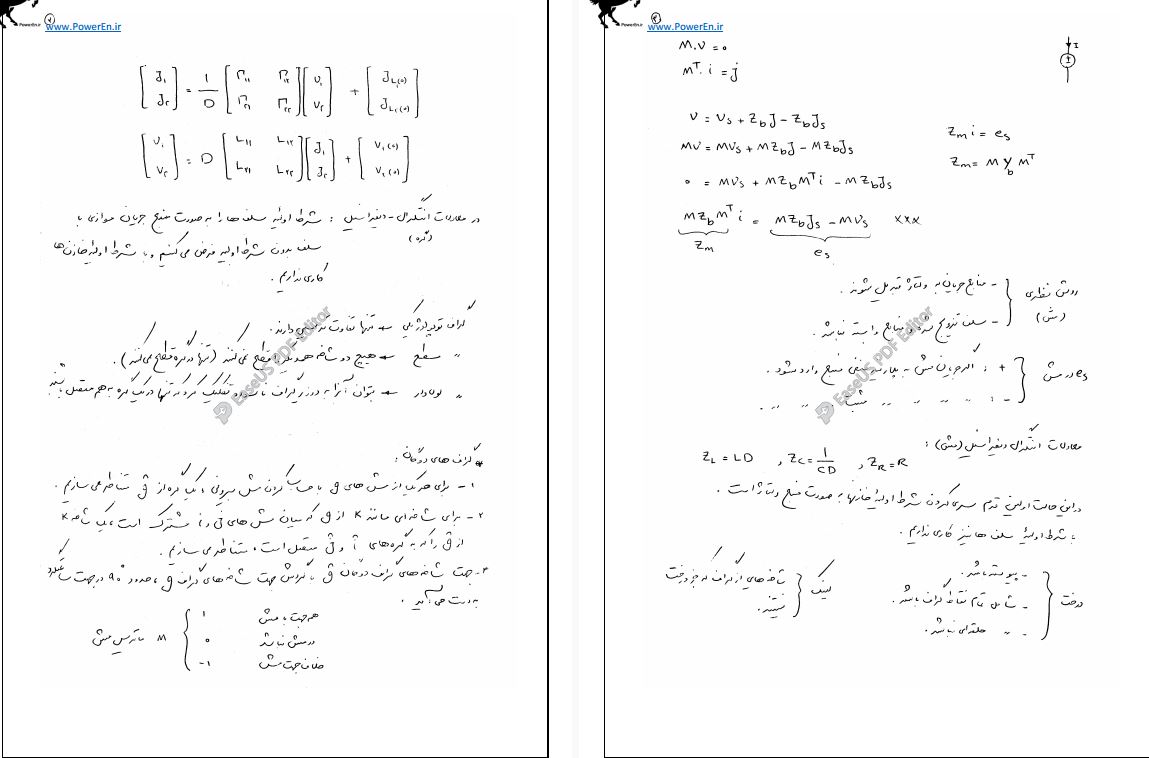 PowerEn.ir
www.PowerEn.ir
[J₁ J₂] = 1/D [Γ₁₁ Γ₁₂ Γ₂₁ Γ₂₂] [v₁ v₂] + [J_L₁(۰) J_L₂(۰)]
[v₁ v₂] = D [L₁₁ L₁₂ L₂₁ L₂₂] [J₁ J₂] + [v₁(۰) v₂(۰)]
در معادلات انتگرال - دیفرانسیل : شرط اولیه سلف ها را به صورت منبع جریان موازی با
(گره)
سلف بدون شرط اولیه فرض می کنیم و با شرط اولیه خازن ها
کاری نداریم .
گراف توپولوژیکی ← تنها تفاوت دارند .
〃 مسطح ← هیچ دو شاخه همدیگر را قطع نمی کنند (تنها در گره قطع می کنند) .
〃 لولادار ← بتوان آنرا به دو زیرگراف تفکیک کرد که تنها در یک گره به هم متصل باشند
EaseUS PDF Editor
* گراف های دوگان :
۱- برای هر یک از مش های و با حساب کردن مش بیرونی ، یک گره از متناظر می سازیم .
۲- برای شاخه ای مانند K از که میان مش های i و j مشترک است ، یک شاخه K
از را که به گره های متصل است ، متناظر می سازیم .
۳- جهت شاخه های گراف دوگان با گردش جهت شاخه های گراف ، حدود ۹۰° در جهت ساعتگرد
به دست می آید .
M ماتریس مش
۱ هم جهت با مش
۰ در مش نباشد
-۱ خلاف جهت مش
PowerEn.ir
www.PowerEn.ir
M.v = ۰
Mᵀ.i = j
v = vₛ + Z_b J - Z_b Jₛ
Mv = Mvₛ + MZ_b J - MZ_b Jₛ
۰ = Mvₛ + MZ_b Mᵀi - MZ_b Jₛ
MZ_b Mᵀ i = MZ_b Jₛ - Mvₛ xxx
Zₘ eₛ
I
Zₘ i = eₛ
Zₘ = M Y_b Mᵀ
روش نظری
(مش)
- منابع جریان به ولتاژ تبدیل شوند .
- سلف تزویج شده و منابع وابسته نباشد .
eₛ در مش
+ : اگر جریان مش به پلاریته منفی منبع وارد شود .
- : 〃 〃 〃 〃 〃 مثبت 〃 〃 〃 .
EaseUS PDF Editor
معادلات انتگرال دیفرانسیل (مش) :
Z_L = LD , Z_C = 1/CD , Z_R = R
در این حالت اولین قدم سری کردن شرط اولیه خازنها به صورت منبع ولتاژ است .
با شرط اولیه سلف ها نیز کاری نداریم .
درخت
- پیوسته باشد .
- شامل تمام نقاط گراف باشد .
- 〃 حلقه ای نباشد .
لینک
شاخه هایی از گراف که جزو درخت
نیستند .